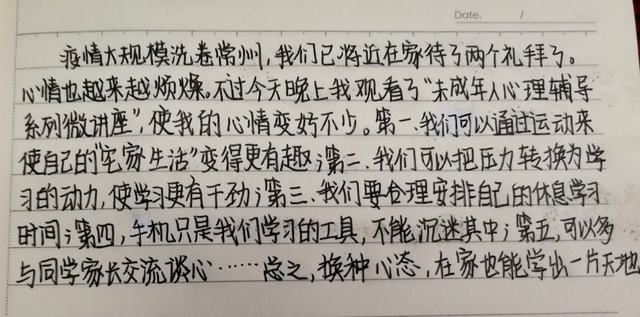 Date. /
疫情大规模洗卷常州,我们已将近在家待了两个礼拜了。
心情也越来越烦燥。不过今天晚上我观看了“未成年人心理辅导
系列微讲座”,使我的心情变好不少。第一、我们可以通过运动来
使自己的“宅家生活”变得更有趣;第二、我们可以把压力转换为学
习的动力,使学习更有干劲;第三、我们要合理安排自己的休息学习
时间;第四,手机只是我们学习的工具,不能沉迷其中;第五,可以多
与同学家长交流谈心……总之,换种心态,在家也能学出一片天地